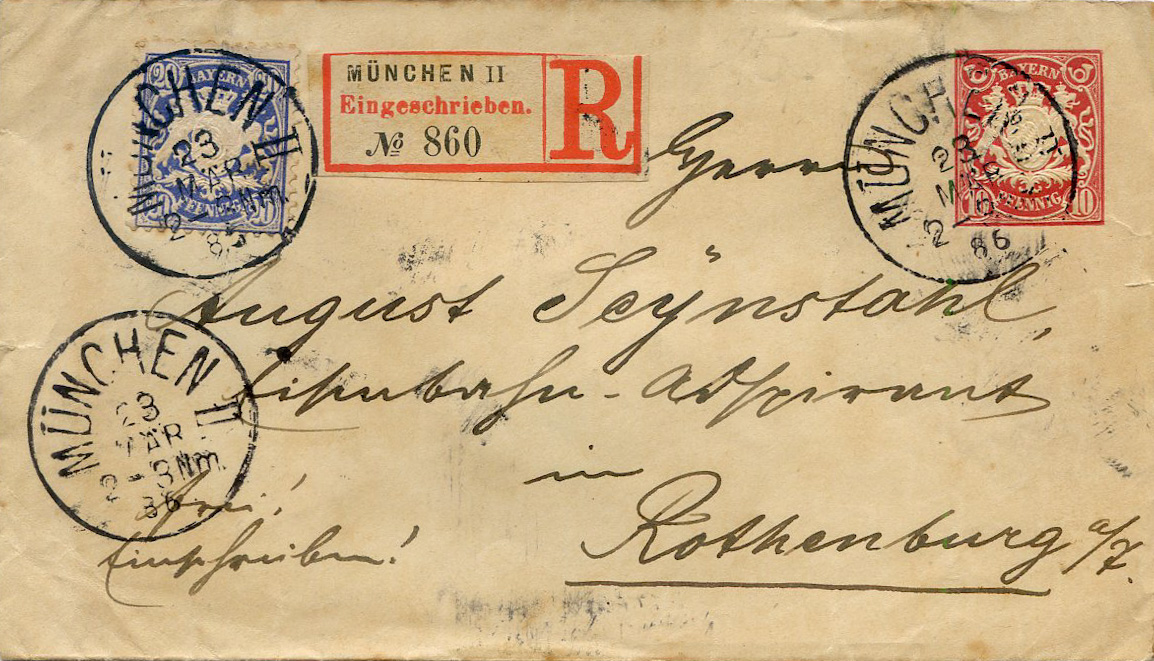 20 BAYERN 20
PFENNIG 20
MÜNCHEN II
23
MAR
2-3 Nm.
86
MÜNCHEN II
Eingeschrieben.
№ 860
R
BAYERN
PFENNIG 10
MÜNCHEN II
23
MAR
2-3
86
Herrn
August Seÿnstahl,
Eisenbahn-Adspirant
in
Rothenburg a/T.
MÜNCHEN II
23
MAR
2-3 Nm.
86
frei!
Einschreiben!